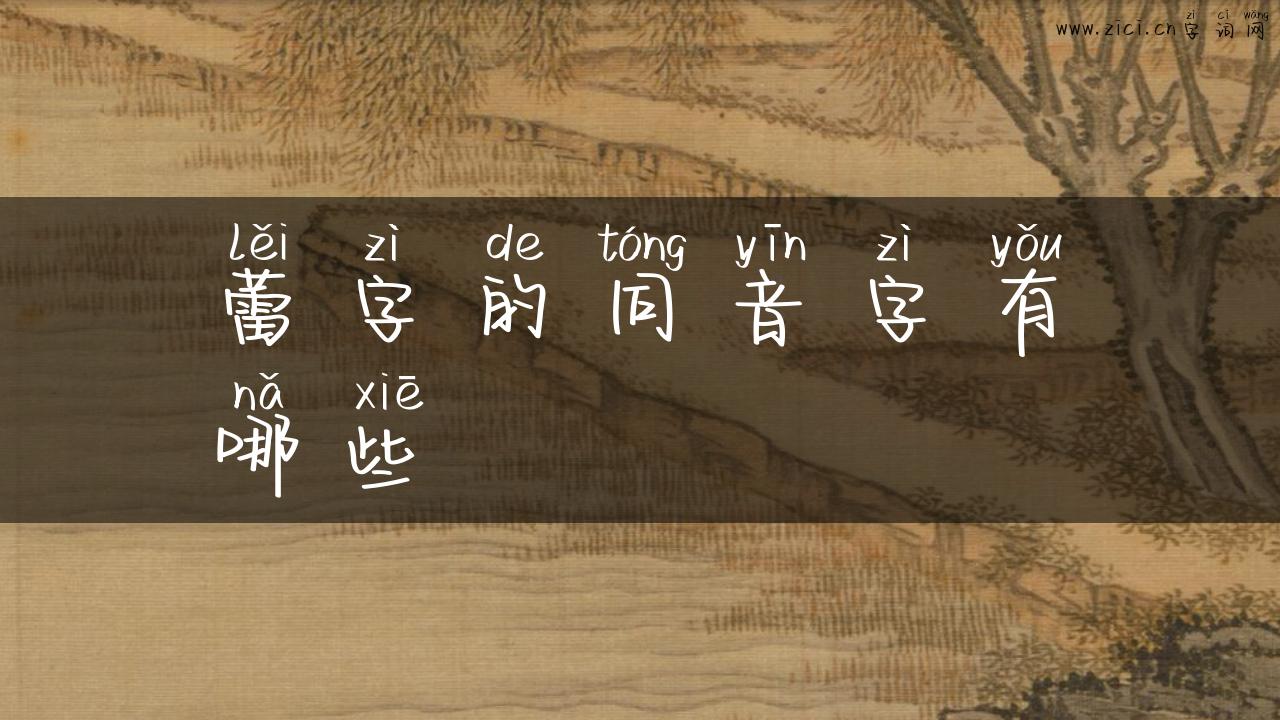 zì cí wǎng
www.zici.cn字词网
lěi zì de tóng yīn zì yǒu
蕾字的同音字有
nǎ xiē
哪些